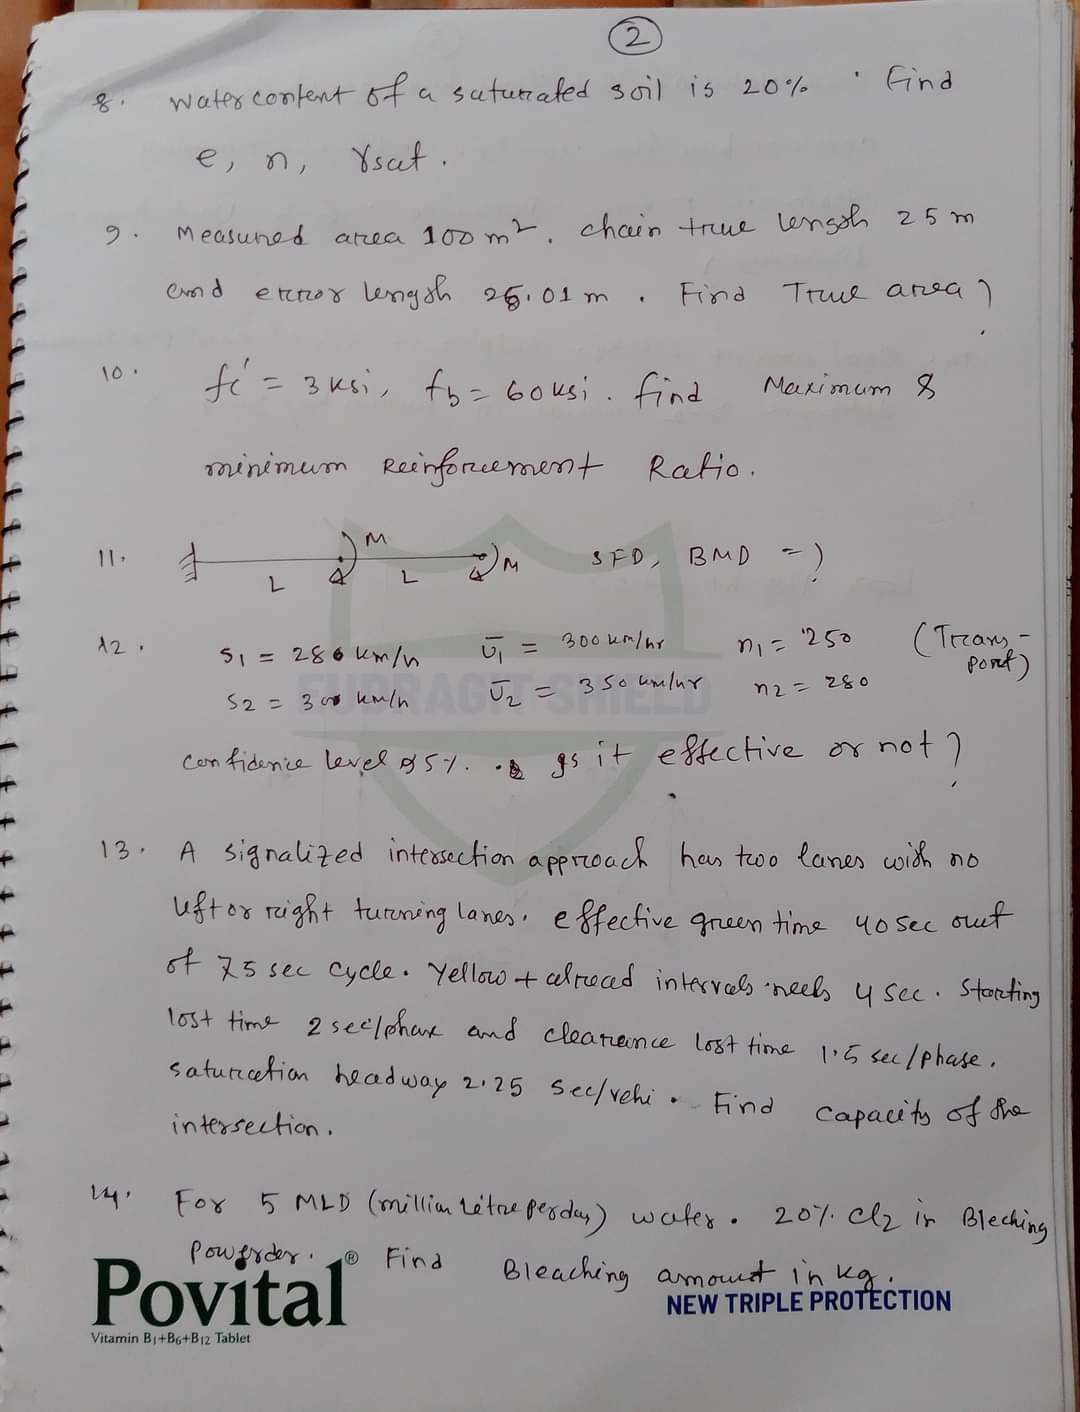 2
8. Water content of a saturated soil is 20%. Find
e, n, γsat.
9. Measured area 100 m². chain true length 25 m
and error length 25.01 m. Find True area?
10. fc' = 3 ksi, fy = 60 ksi. find Maximum &
minimum Reinforcement Ratio.
11. M M L L SFD, BMD = ?
12. S1 = 280 km/h ū1 = 300 km/hr n1 = 250 (Trans-
port)
S2 = 300 km/h ū2 = 350 km/hr n2 = 280
EUDRAGIT SHIELD
confidence level 95%. Is it effective or not?
13. A signalized intersection approach has two lanes with no
left or right turning lanes. effective green time 40 sec out
of 75 sec cycle. Yellow + alread intervals needs 4 sec. Starting
lost time 2 sec/phase and clearance lost time 1.5 sec/phase.
saturation headway 2.25 sec/vehi. Find capacity of the
intersection.
14. For 5 MLD (million litre per day) water. 20% Cl2 in Bleching
powerder. Find Bleaching amount in kg.
Povital®
NEW TRIPLE PROTECTION
Vitamin B1+B6+B12 Tablet